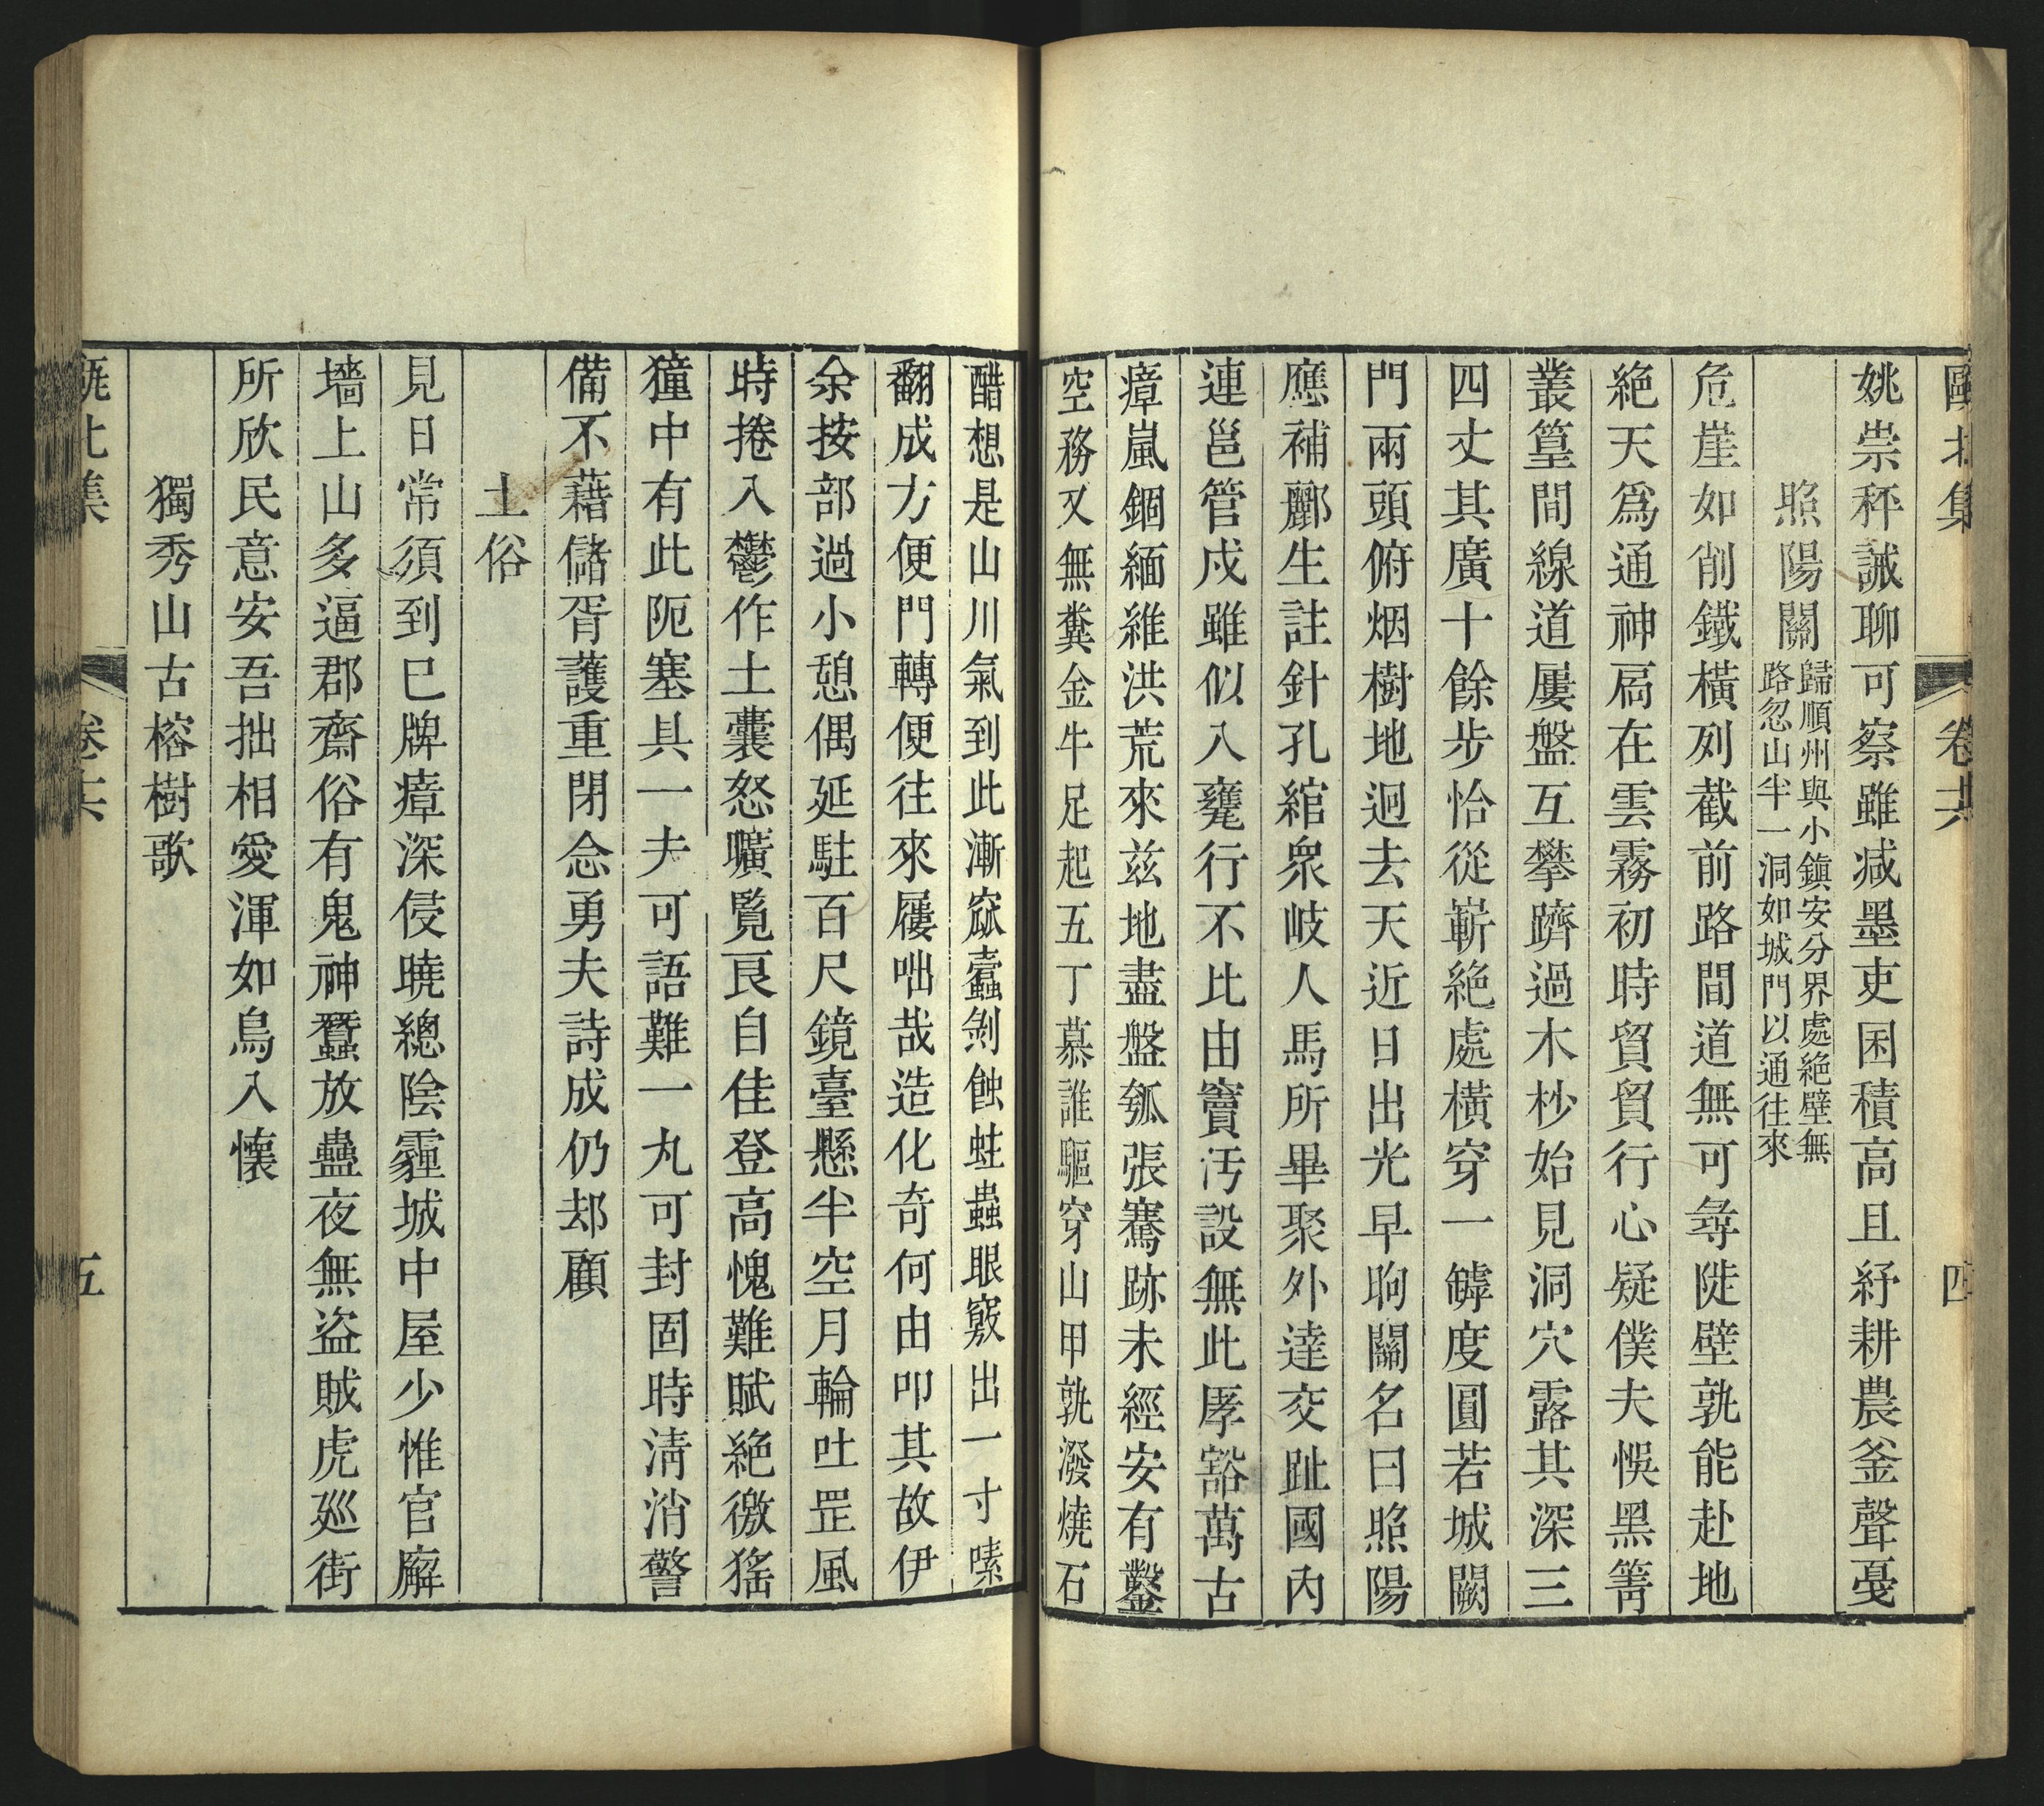 甌北集　卷十六　四
姚崇秤誡聊可察雖減墨吏囷積高且紓耕農釜聲戞
照陽關
歸順州與小鎮安分界處絶壁無
路忽山半一洞如城門以通往來
危崖如削鐵橫列截前路間道無可尋陡壁孰能赴地
絶天爲通神扃在雲霧初時貿貿行心疑僕夫悞黑箐
叢篁間線道屢盤互攀躋過木杪始見洞穴露其深三
四丈其廣十餘步恰從嶄絶處橫穿一罅度圓若城闕
門兩頭俯烟樹地迥去天近日出光早昫關名曰照陽
應補酈生註針孔綰衆岐人馬所畢聚外達交趾國內
連邕管戍雖似入甕行不比由竇汚設無此厜豁萬古
瘴嵐錮緬維洪荒來兹地盡盤瓠張騫跡未經安有鑿
空務又無糞金牛足起五丁慕誰驅穿山甲孰潑燒石
醋想是山川氣到此漸窳蠹剝蝕蛀蟲眼竅出一寸嗉
翻成方便門轉便往來屨咄哉造化奇何由叩其故伊
余按部過小憩偶延駐百尺鏡臺懸半空月輪吐罡風
時捲入鬱作土囊怒曠覧艮自佳登高愧難賦絶徼猺
獞中有此阨塞具一夫可語難一丸可封固時淸消警
備不藉儲胥護重閉念勇夫詩成仍却顧
土俗
見日常須到巳牌瘴深侵曉總陰霾城中屋少惟官廨
墻上山多逼郡齋俗有鬼神蠶放蠱夜無盜賊虎廵街
所欣民意安吾拙相愛渾如鳥入懷
獨秀山古榕樹歌
甌北集　卷十六　五